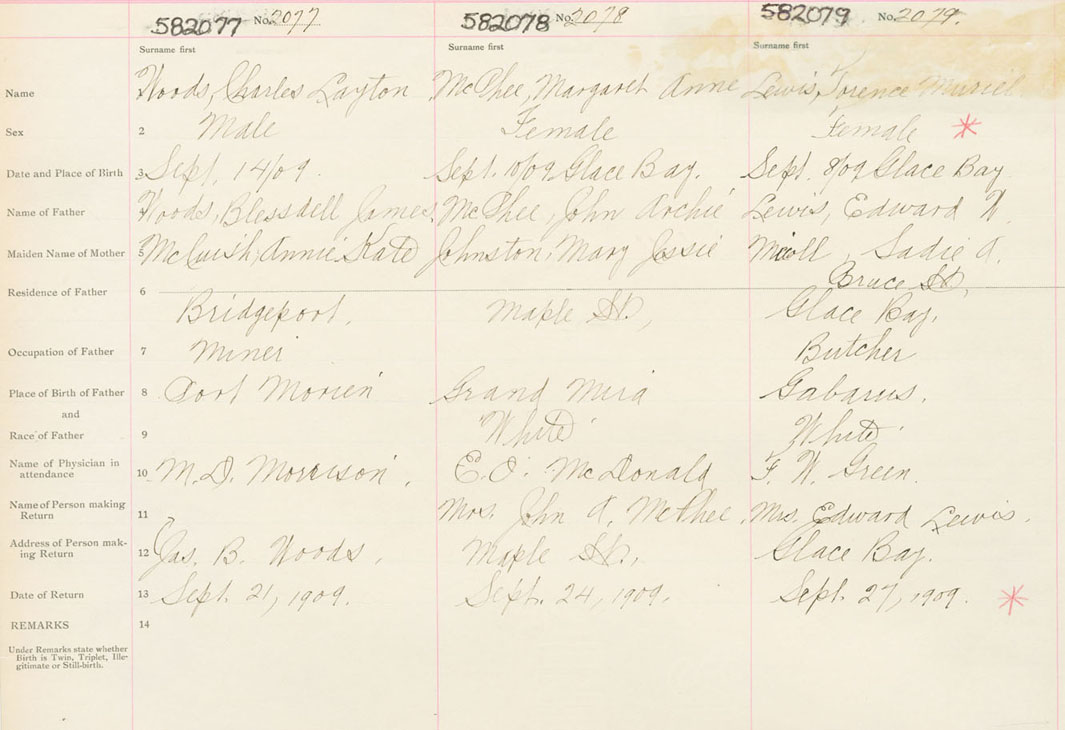 582077 No. 2077 582078 No. 2078 582079 No. 2079.
Surname first Surname first Surname first
Name Woods, Charles Layton McPhee, Margaret Anne Lewis, Florence Muriel
Sex 2 Male Female Female
Date and Place of Birth 3 Sept. 14/09. Sept. 10/09 Glace Bay. Sept. 8/09 Glace Bay
Name of Father Woods, Blessdell James. McPhee, John Archie Lewis, Edward W.
Maiden Name of Mother 5 McCuish, Annie Kate Johnston, Mary Jessie Nicoll, Sadie A.
Bruce St,
Residence of Father 6 Bridgeport. Maple St., Glace Bay.
Occupation of Father 7 Miner Butcher
Place of Birth of Father 8 Port Morien Grand Mira Gabarus.
and
Race of Father 9 White White
Name of Physician in
attendance 10 M. D. Morrison. E. O. McDonald F. W. Green.
Name of Person making
Return 11 Mrs. John A. McPhee. Mrs. Edward Lewis.
Address of Person mak-
ing Return 12 Jas. B. Woods. Maple St., Glace Bay.
Date of Return 13 Sept. 21, 1909. Sept. 24, 1909. Sept. 27, 1909.
REMARKS 14
Under Remarks state whether
Birth is Twin, Triplet, Ille-
gitimate or Still-birth.